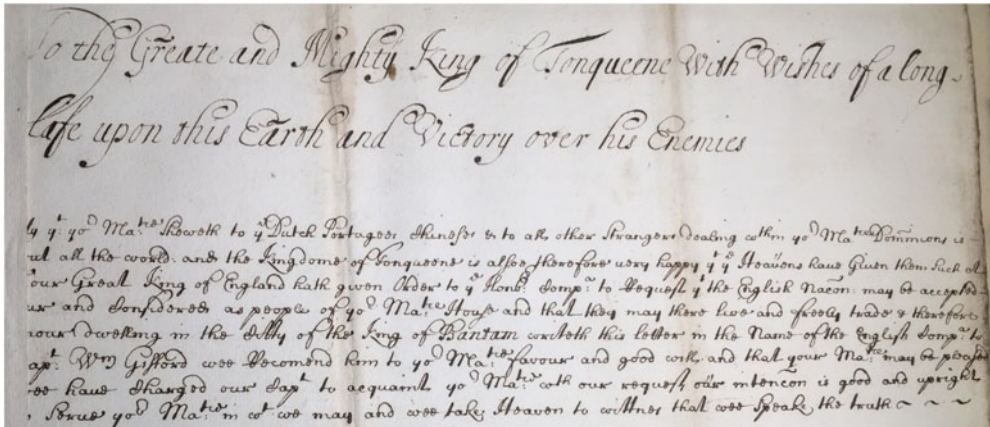 To the Greate and Mighty King of Tonqueene With Wishes of a long
life upon this Earth and Victory over his Enemies
yt yor Matie sheweth to ye Dutch Portugees Chineses & to all other Strangers dealing wthin yor Maties Dominions is
all the world. and the Kingdome of Tonqueene is alsoe therefore very happy yt ye Heavens have Given them Such
our Great King of England hath given Order to ye Honble Compa to Request yt the English Nacon may be accepted
and Considered as people of yor Maties House and that they may there live and freely trade & therefore
dwelling in the Citty of the King of Bantam writeth this letter in the Name of the English Compa to
Capt Wm Gifford wee Recomend him to yor Maties favour and good will, and that your Matie may be pleased
wee have Charged our Capt to acquaint yor Matie wth our request our intencon is good and upright
Serve yor Matie in wt we may and wee take Heaven to wittnes that wee Speake the truth ~ ~ ~